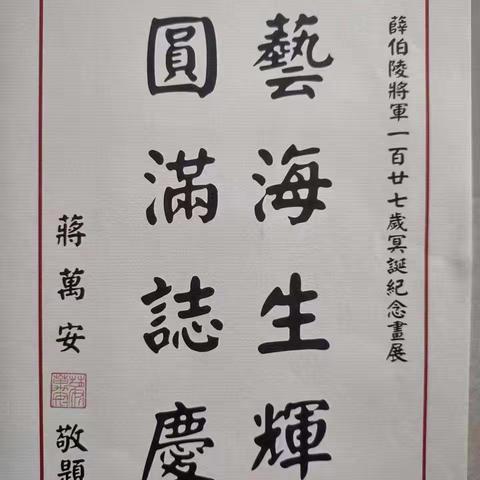 薛伯陵將軍一百廿七歲冥誕紀念畫展
藝海生輝
圓滿誌慶
蔣萬安
敬題